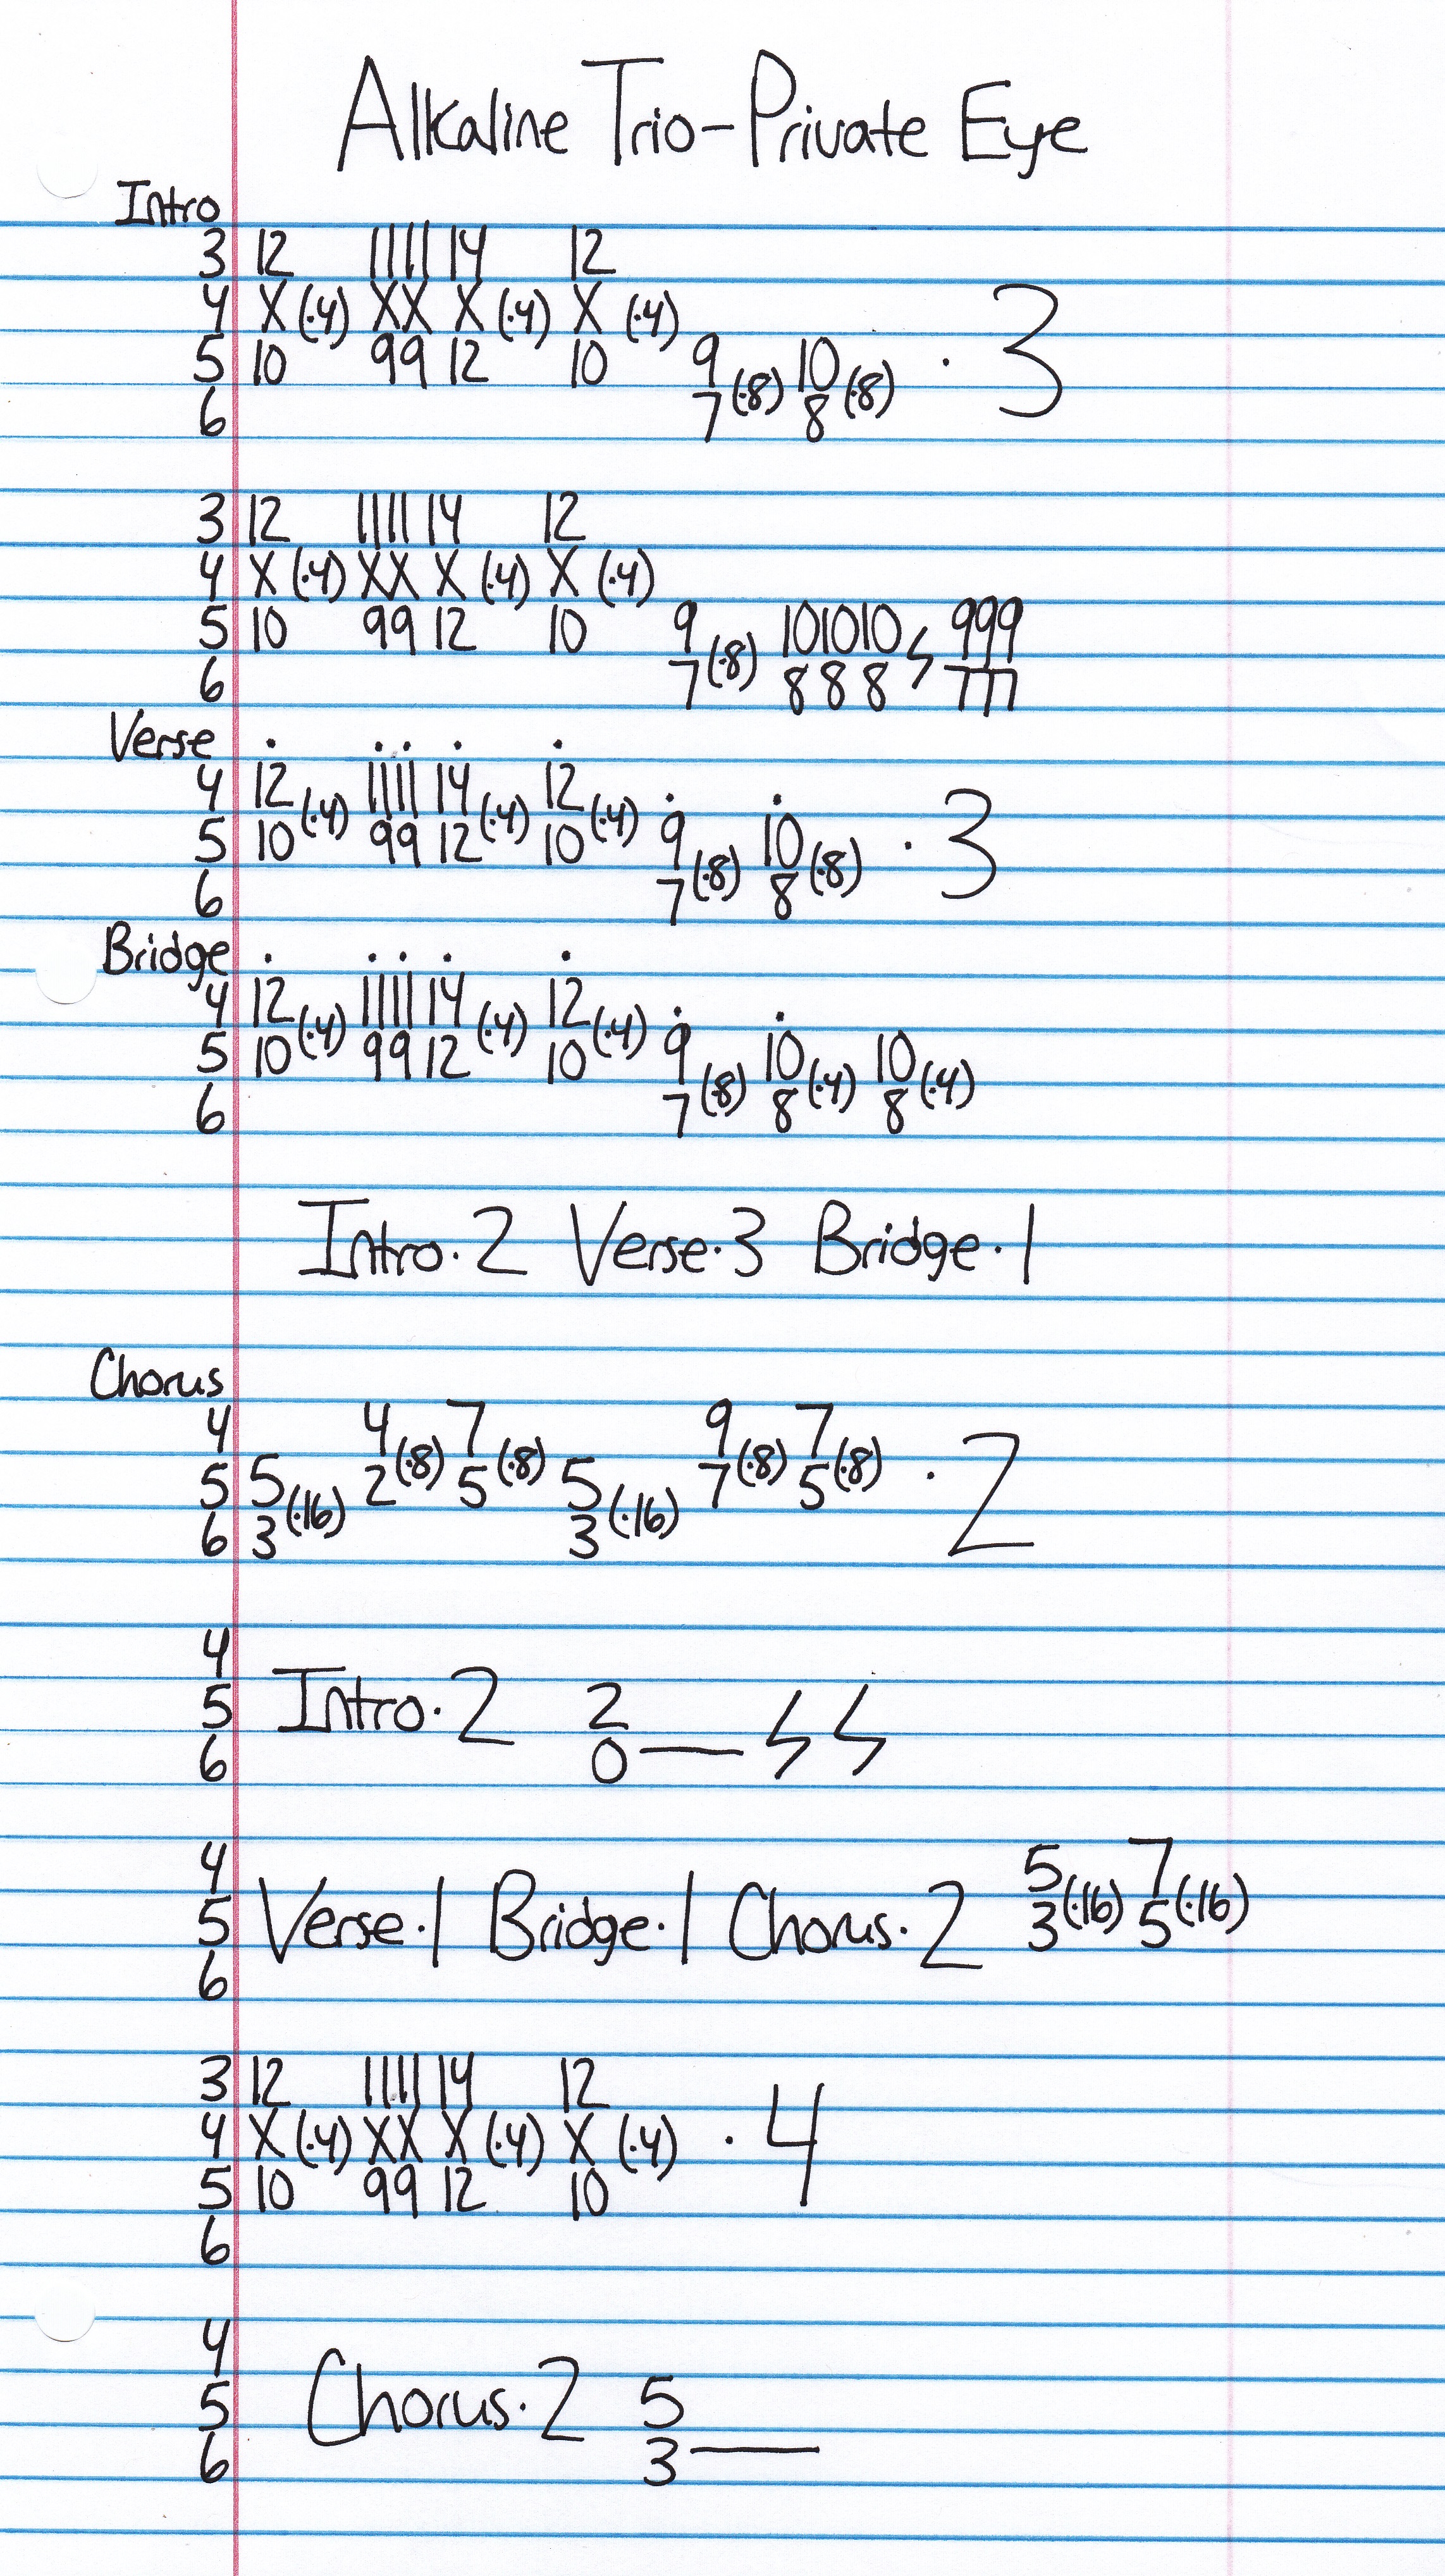 Alkaline Trio-Private Eye
Intro
3 12 11 11 14 12
4 X (·4) X X X (·4) X (·4)
5 10 9 9 12 10 9 10 · 3
6 7 (·8) 8 (·8)
3 12 11 11 14 12
4 X (·4) X X X (·4) X (·4)
5 10 9 9 12 10 9 10 10 10 9 9 9
6 7 (·8) 8 8 8 7 7 7
Verse
4 12 11 11 14 12
5 10 (·4) 9 9 12 (·4) 10 (·4) 9 10 · 3
6 7 (·8) 8 (·8)
Bridge
4 12 11 11 14 12
5 10 (·4) 9 9 12 (·4) 10 (·4) 9 10 10
6 7 (·8) 8 (·4) 8 (·4)
Intro·2 Verse·3 Bridge·1
Chorus
4 4 7 9 7
5 5 2 (·8) 5 (·8) 5 7 (·8) 5 (·8) · 2
6 3 (·16) 3 (·16)
4
5 Intro·2 2
6 0—
4 5 7
5 Verse·1 Bridge·1 Chorus·2 3 (·16) 5 (·16)
6
3 12 11 11 14 12
4 X (·4) X X X (·4) X (·4) · 4
5 10 9 9 12 10
6
4
5 Chorus·2 5
6 3—